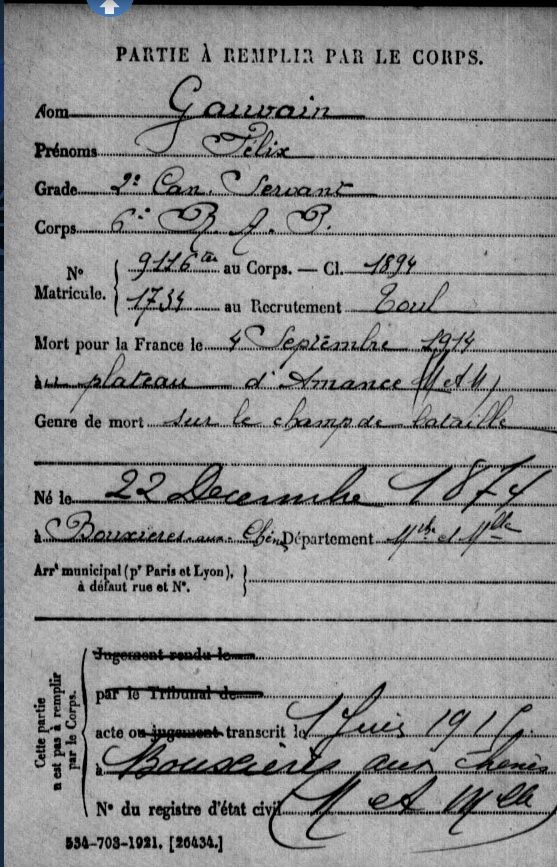 PARTIE À REMPLIR PAR LE CORPS.
Nom Gauvain
Prénoms Félix
Grade 2e Can. Servant
Corps 6e R. A. P.
N° Matricule. 9116 bis au Corps. — Cl. 1894
1734 au Recrutement Toul
Mort pour la France le 4 Septembre 1914
à plateau d'Amance (M et M)
Genre de mort sur le champ de bataille
Né le 22 Decembre 1874
à Bouxieres-aux-Chênes Département Mthe et Mlle
Arrt municipal (pr Paris et Lyon),
à défaut rue et N°.
Cette partie n'est pas à remplir par le Corps.
Jugement rendu le
par le Tribunal de
acte ou jugement transcrit le 1 Juin
à Bouxières aux Chênes
N° du registre d'état civil M et Mlle
534-703-1921. [26434.]